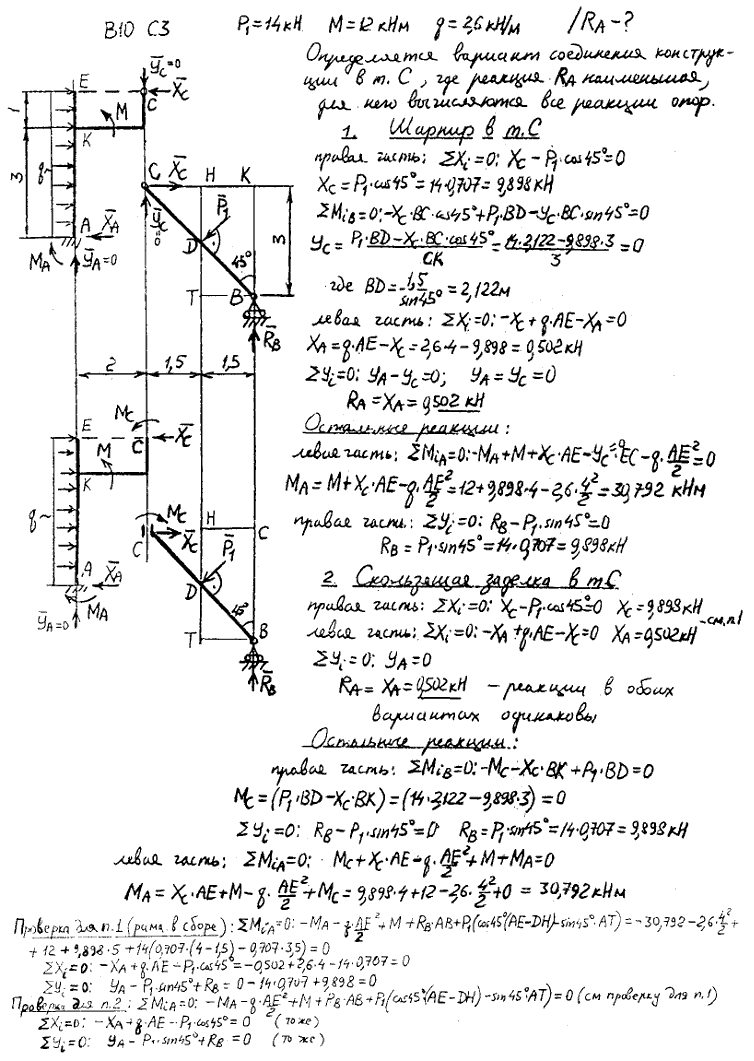 В10 С3 P₁=14кН M=12кНм q=2,6кН/м /R_A-?
Определяется вариант соединения конструк-
ции в т. С, где реакция R_A наименьшая,
для него вычисляются все реакции опор.
1. Шарнир в т.С
правая часть: ΣXᵢ=0: X_C - P₁·cos45°=0
X_C=P₁·cos45°=14·0,707=9,898кН
ΣM_iB=0: -X_C·BC·cos45°+P₁·BD-Y_C·BC·sin45°=0
Y_C= (P₁·BD-X_C·BC·cos45°)/CK = (14·2,122-9,898·3)/3 =0
где BD= 1,5/sin45° =2,122м
левая часть: ΣXᵢ=0: -X_C+q·AE-X_A=0
X_A=q·AE-X_C=2,6·4-9,898=0,502кН
ΣYᵢ=0: Y_A-Y_C=0; Y_A=Y_C=0
R_A=X_A=0,502 кН
Остальные реакции:
левая часть: ΣM_iA=0: -M_A+M+X_C·AE-Y_C⁼⁰·EC-q·AE²/2=0
M_A=M+X_C·AE-q·AE²/2=12+9,898·4-2,6·4²/2=30,792 кНм
правая часть: ΣYᵢ=0: R_B-P₁·sin45°=0
R_B=P₁·sin45°=14·0,707=9,898кН
2. Скользящая заделка в т.С
правая часть: ΣXᵢ=0: X_C-P₁·cos45°=0 X_C=9,898кН
левая часть: ΣXᵢ=0: -X_A+q·AE-X_C=0 X_A=0,502кН -см.п.1
ΣYᵢ=0: Y_A=0
R_A=X_A=0,502кН - реакции в обоих
вариантах одинаковы
Остальные реакции:
правая часть: ΣM_iB=0: -M_C-X_C·BK+P₁·BD=0
M_C=(P₁·BD-X_C·BK)=(14·2,122-9,898·3)=0
ΣYᵢ=0: R_B-P₁·sin45°=0 R_B=P₁·sin45°=14·0,707=9,898кН
левая часть: ΣM_iA=0: M_C+X_C·AE-q·AE²/2+M+M_A=0
M_A=X_C·AE+M-q·AE²/2+M_C=9,898·4+12-2,6·4²/2+0=30,792кНм
Проверка для п.1 (рама в сборе): ΣM_iA=0: -M_A-q·AE²/2+M+R_B·AB+P₁(cos45°(AE-DH)-sin45°·AT)=-30,792-2,6·4²/2+
+12+9,898·5+14(0,707·(4-1,5)-0,707·3,5)=0
ΣXᵢ=0: -X_A+q·AE-P₁·cos45°=-0,502+2,6·4-14·0,707=0
ΣYᵢ=0: Y_A-P₁·sin45°+R_B=0-14·0,707+9,898=0
Проверка для п.2: ΣM_iA=0: -M_A-q·AE²/2+M+R_B·AB+P₁(cos45°(AE-DH)-sin45°AT)=0 (см проверку для п.1)
ΣXᵢ=0: -X_A+q·AE-P₁·cos45°=0 (тоже)
ΣYᵢ=0: Y_A-P₁·sin45°+R_B=0 (тоже)
Y_C=0
E X_C
M C
1 K
q
3 C X_C H K
A X_A Y_C=0 P₁ 3
M_A Y_A=0 D 45°
T B
R_B
2 1,5 1,5
M_C
E M C X_C
K
q M_C
C X_C H C
A X_A P₁
D 45°
M_A
Y_A=0 T B
R_B